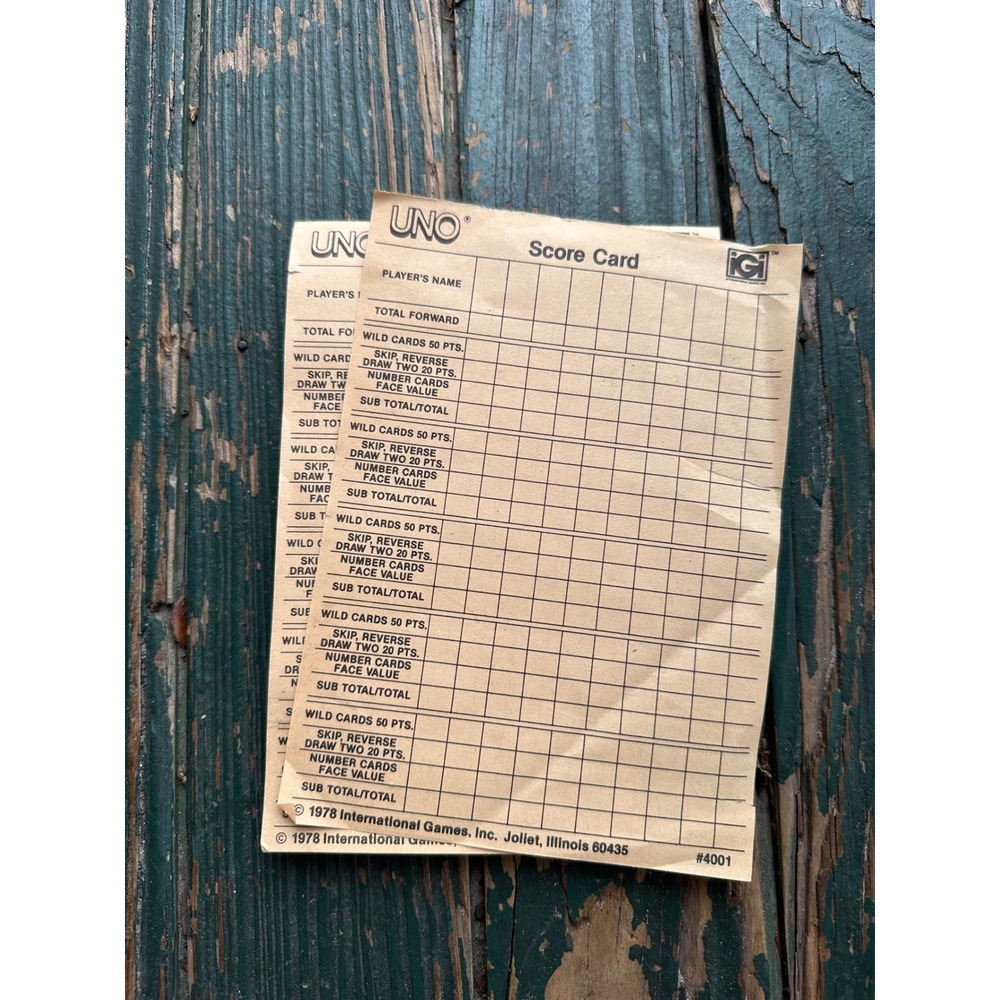 UNO®
Score Card
iGi™
PLAYER'S NAME
TOTAL FORWARD
WILD CARDS 50 PTS.
SKIP, REVERSE
DRAW TWO 20 PTS.
NUMBER CARDS
FACE VALUE
SUB TOTAL/TOTAL
WILD CARDS 50 PTS.
SKIP, REVERSE
DRAW TWO 20 PTS.
NUMBER CARDS
FACE VALUE
SUB TOTAL/TOTAL
WILD CARDS 50 PTS.
SKIP, REVERSE
DRAW TWO 20 PTS.
NUMBER CARDS
FACE VALUE
SUB TOTAL/TOTAL
WILD CARDS 50 PTS.
SKIP, REVERSE
DRAW TWO 20 PTS.
NUMBER CARDS
FACE VALUE
SUB TOTAL/TOTAL
WILD CARDS 50 PTS.
SKIP, REVERSE
DRAW TWO 20 PTS.
NUMBER CARDS
FACE VALUE
SUB TOTAL/TOTAL
© 1978 International Games, Inc. Joliet, Illinois 60435
#4001
UNO
PLAYER'S
TOTAL
WILD CARD
SKIP,
DRAW
FACE
SUB
WILD
SKIP,
DRAW
SUB
WILD
SUB
© 1978 International Games,